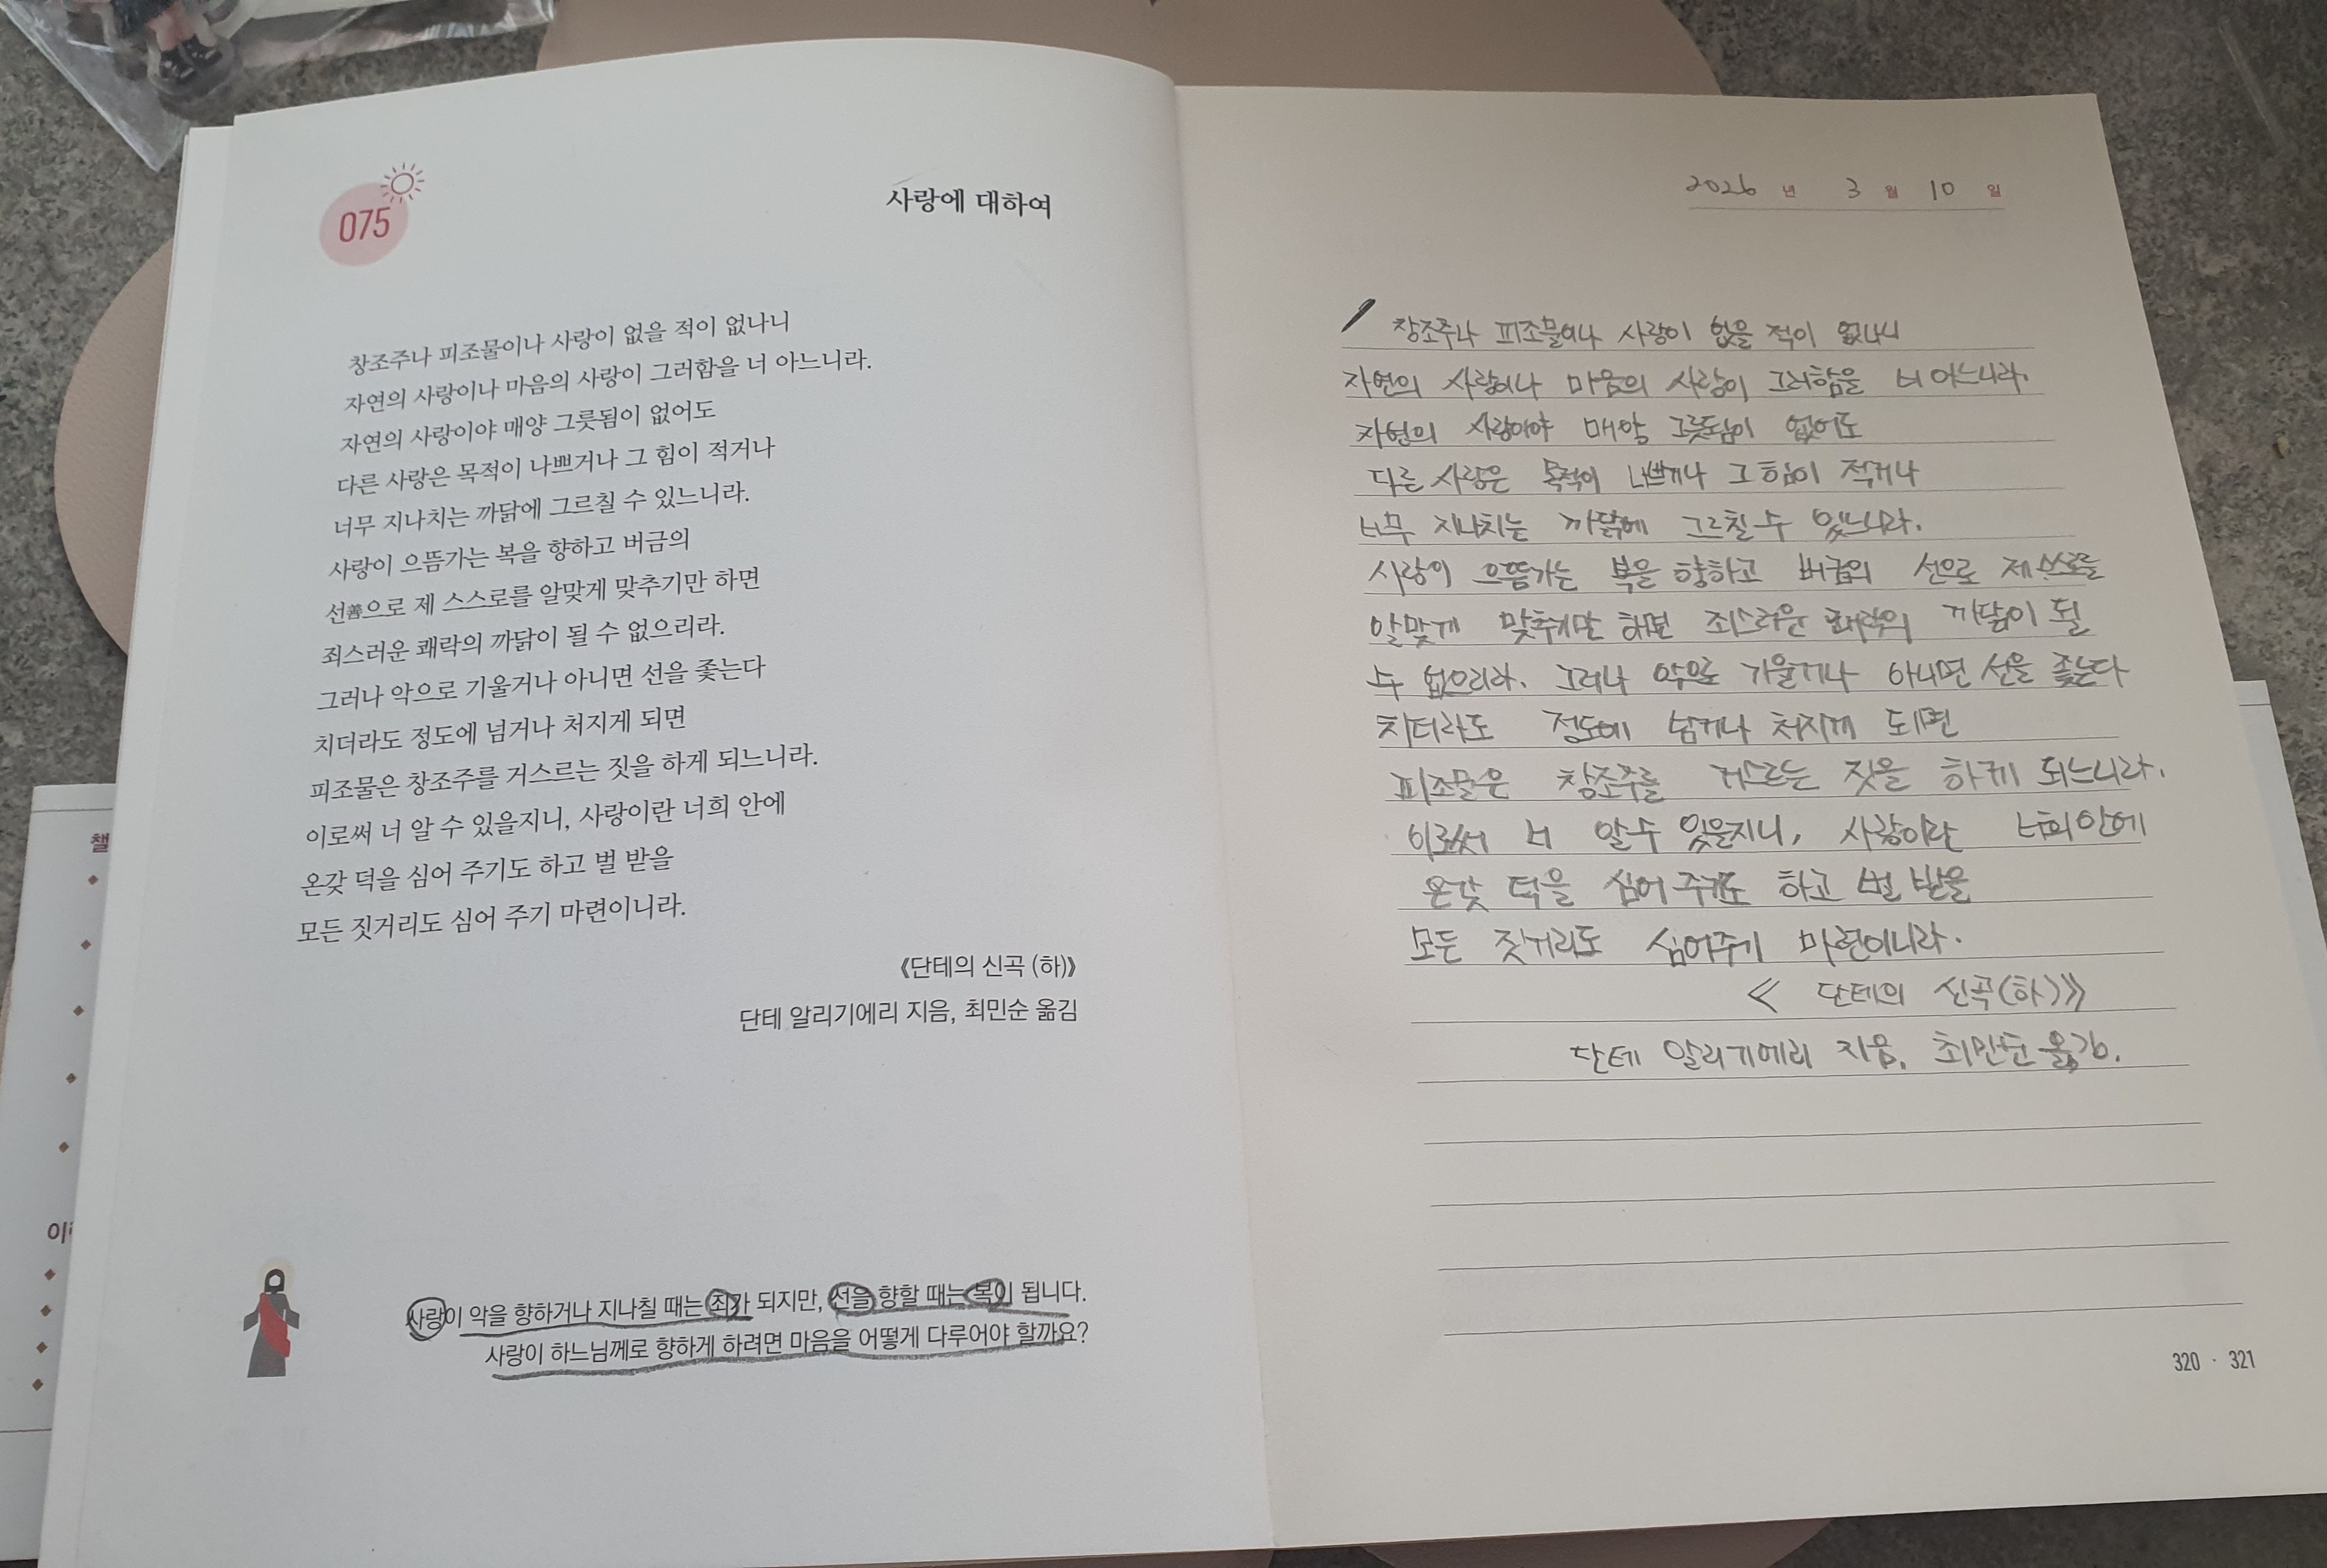 075
사랑에 대하여
창조주나 피조물이나 사랑이 없을 적이 없나니
자연의 사랑이나 마음의 사랑이 그러함을 너 아느니라.
자연의 사랑이야 매양 그릇됨이 없어도
다른 사랑은 목적이 나쁘거나 그 힘이 적거나
너무 지나치는 까닭에 그르칠 수 있느니라.
사랑이 으뜸가는 복을 향하고 버금의
선善으로 제 스스로를 알맞게 맞추기만 하면
죄스러운 쾌락의 까닭이 될 수 없으리라.
그러나 악으로 기울거나 아니면 선을 좇는다
치더라도 정도에 넘거나 처지게 되면
피조물은 창조주를 거스르는 짓을 하게 되느니라.
이로써 너 알 수 있을지니, 사랑이란 너희 안에
온갖 덕을 심어 주기도 하고 벌 받을
모든 짓거리도 심어 주기 마련이니라.
《단테의 신곡 (하)》
단테 알리기에리 지음, 최민순 옮김
사랑이 악을 향하거나 지나칠 때는 죄가 되지만, 선을 향할 때는 복이 됩니다.
사랑이 하느님께로 향하게 하려면 마음을 어떻게 다루어야 할까요?
챌
2026 년 3 월 10 일
창조주나 피조물이나 사랑이 없을 적이 없나니
자연의 사랑이나 마음의 사랑이 그러함을 너 아느니라.
자연의 사랑이야 매양 그릇됨이 없어도
다른 사랑은 목적이 나쁘거나 그 힘이 적거나
너무 지나치는 까닭에 그르칠 수 있느니라.
사랑이 으뜸가는 복을 향하고 버금의 선으로 제 스스로를
알맞게 맞추기만 하면 죄스러운 쾌락의 까닭이 될
수 없으리라. 그러나 악으로 기울거나 아니면 선을 좇는다
치더라도 정도에 넘거나 처지게 되면
피조물은 창조주를 거스르는 짓을 하게 되느니라.
이로써 너 알 수 있을지니, 사랑이란 너희 안에
온갖 덕을 심어 주기도 하고 벌 받을
모든 짓거리도 심어주기 마련이니라.
《 단테의 신곡(하)》
단테 알리기에리 지음, 최민순 옮김.
320 · 321